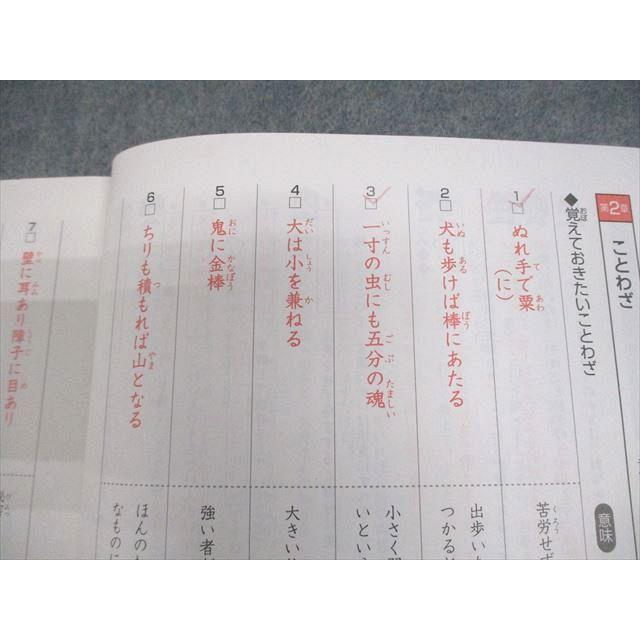 第2章 ことわざ
◆覚えておきたいことわざ
意味
1 ぬれ手で粟
(に)
苦労せず
2 犬も歩けば棒にあたる
出歩いた
つかると
3 一寸の虫にも五分の魂
小さく弱
いという
4 大は小を兼ねる
大きい
5 鬼に金棒
強い者が
6 ちりも積もれば山となる
ほんの
なものに
7 壁に耳あり障子に目あり